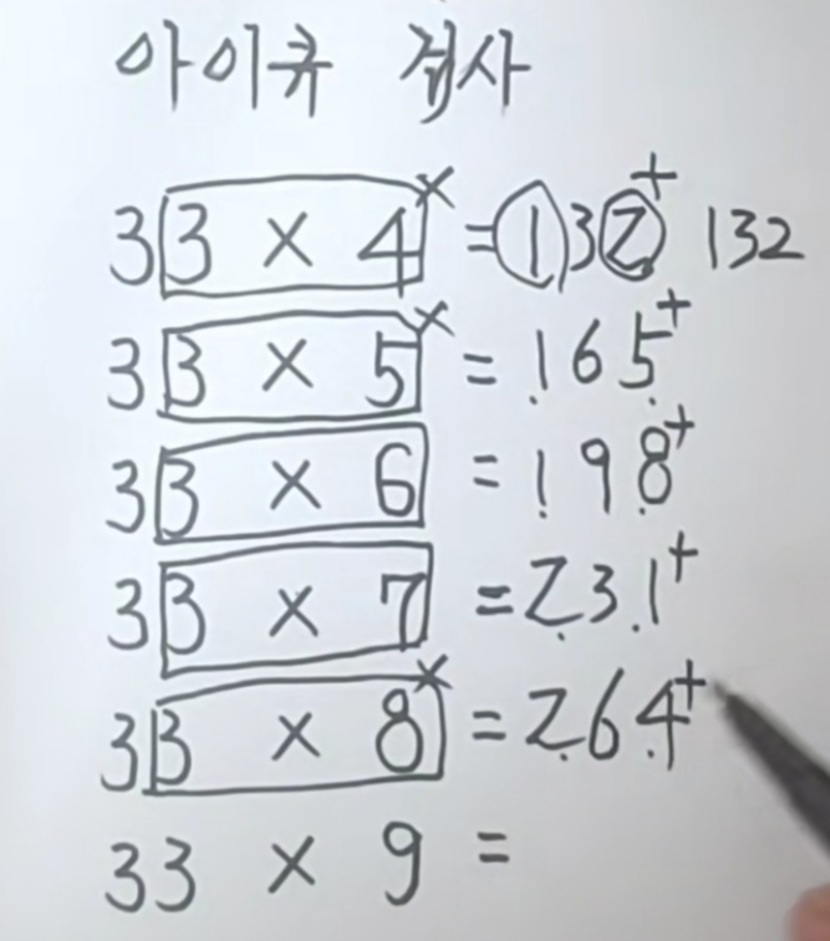 아이큐 검사
33 × 4 × = 132 + 132
33 × 5 × = 165 +
33 × 6 = 198 +
33 × 7 = 231 +
33 × 8 × = 264 +
33 × 9 =